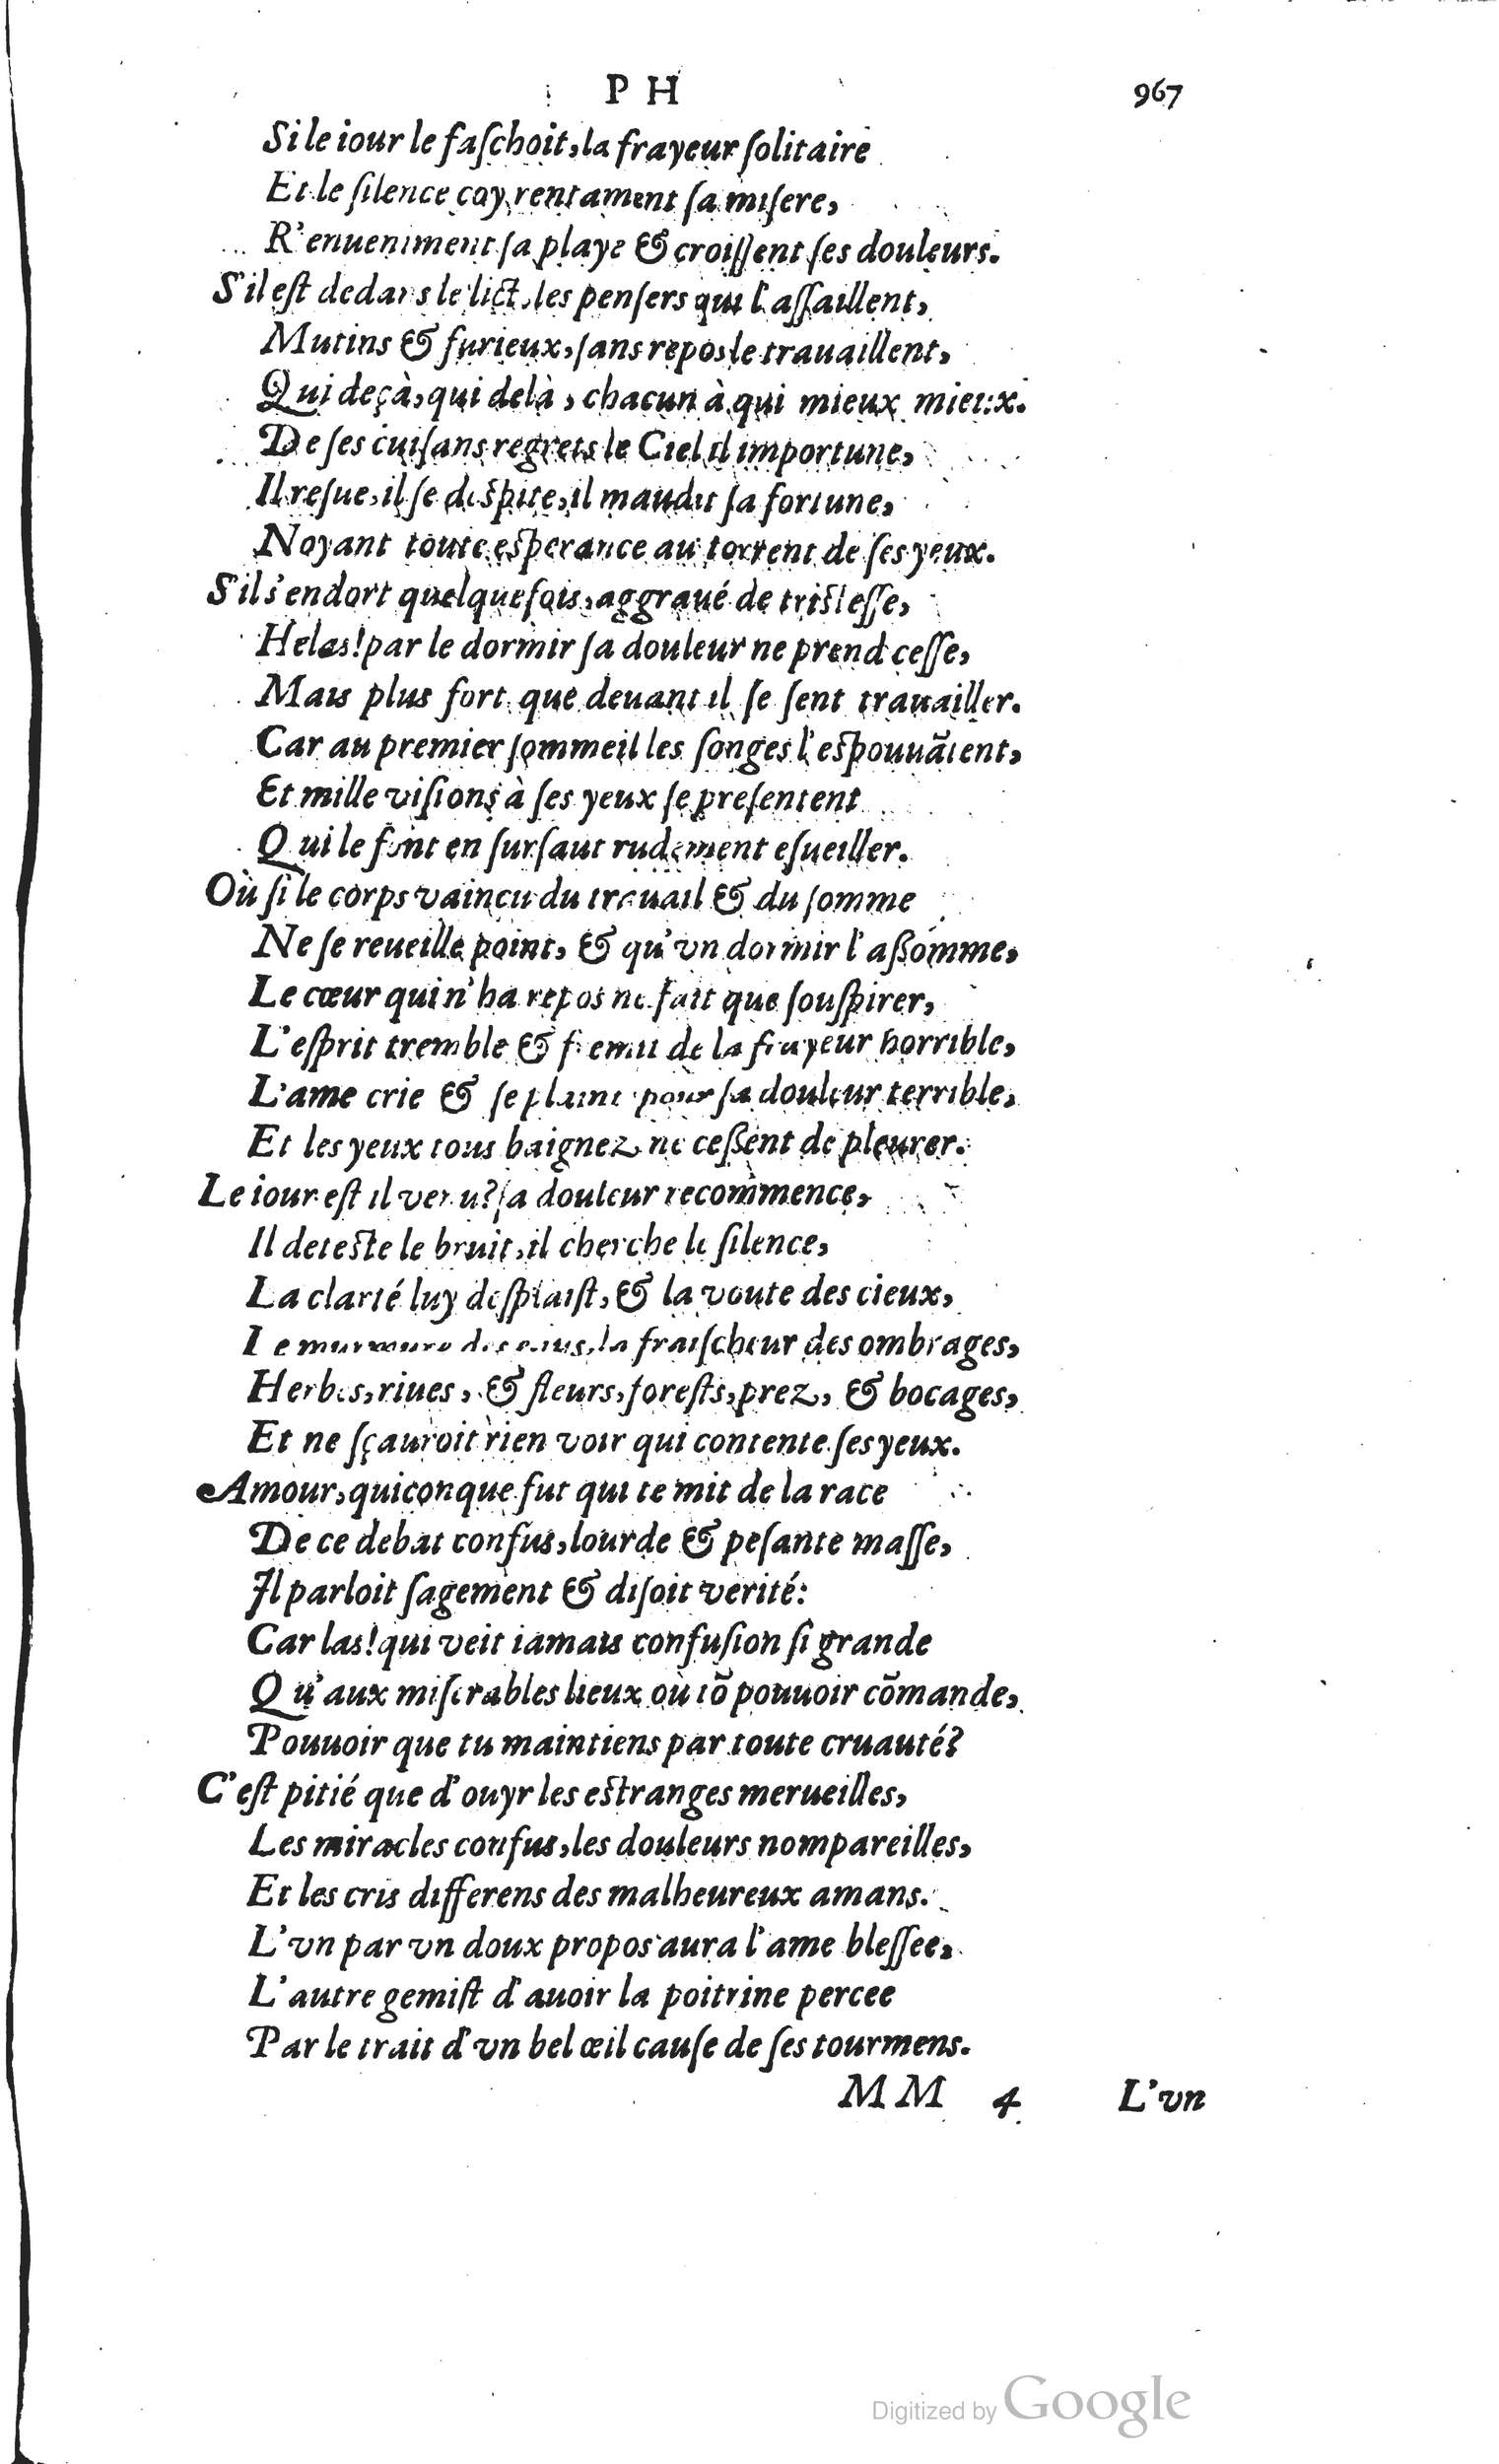 P H 967
Si le iour le faſchoit, la frayeur ſolitaire
Et le ſilence coy rentament ſa miſere,
R'enueniment ſa playe & croiſſent ſes douleurs.
S'il eſt dedans le lict, les penſers qui l'aſſaillent,
Mutins & furieux, ſans repos le trauaillent,
Qui deçà, qui delà, chacun à qui mieux mieux.
De ſes cuiſans regrets le Ciel il importune,
Il reſue, il ſe deſpite, il maudit ſa fortune,
Noyant toute eſperance au torrent de ſes yeux.
S'il s'endort quelquefois, aggraué de triſteſſe,
Helas! par le dormir ſa douleur ne prend ceſſe,
Mais plus fort que deuant il ſe ſent trauailler.
Car au premier ſommeil les ſonges l'eſpouuãtent,
Et mille viſions à ſes yeux ſe preſentent
Qui le font en ſurſaut rudement eſueiller.
Où ſi le corps vaincu du trauail & du ſomme
Ne ſe reueille point, & qu'vn dormir l'aſſomme,
Le cœur qui n'ha repos ne fait que ſouſpirer,
L'eſprit tremble & fremit de la frayeur horrible,
L'ame crie & ſe plaint pour ſa douleur terrible,
Et les yeux tous baignez ne ceſſent de pleurer.
Le iour eſt il venu? ſa douleur recommence,
Il deteſte le bruit, il cherche le ſilence,
La clarté luy deſplaiſt, & la voute des cieux,
Le murmure des eaus, la fraiſcheur des ombrages,
Herbes, riues, & fleurs, foreſts, prez, & bocages,
Et ne ſçauroit rien voir qui contente ſes yeux.
Amour, quiconque fut qui te mit de la race
De ce debat confus, lourde & peſante maſſe,
Il parloit ſagement & diſoit verité:
Car las! qui veit iamais confuſion ſi grande
Qu'aux miſerables lieux où tõ pouuoir cõmande,
Pouuoir que tu maintiens par toute cruauté?
C'eſt pitié que d'ouyr les eſtranges merueilles,
Les miracles confus, les douleurs nompareilles,
Et les cris differens des malheureux amans.
L'vn par vn doux propos aura l'ame bleſſee,
L'autre gemiſt d'auoir la poitrine percee
Par le trait d'vn bel œil cauſe de ſes tourmens.
MM 4 L'vn
Digitized by Google